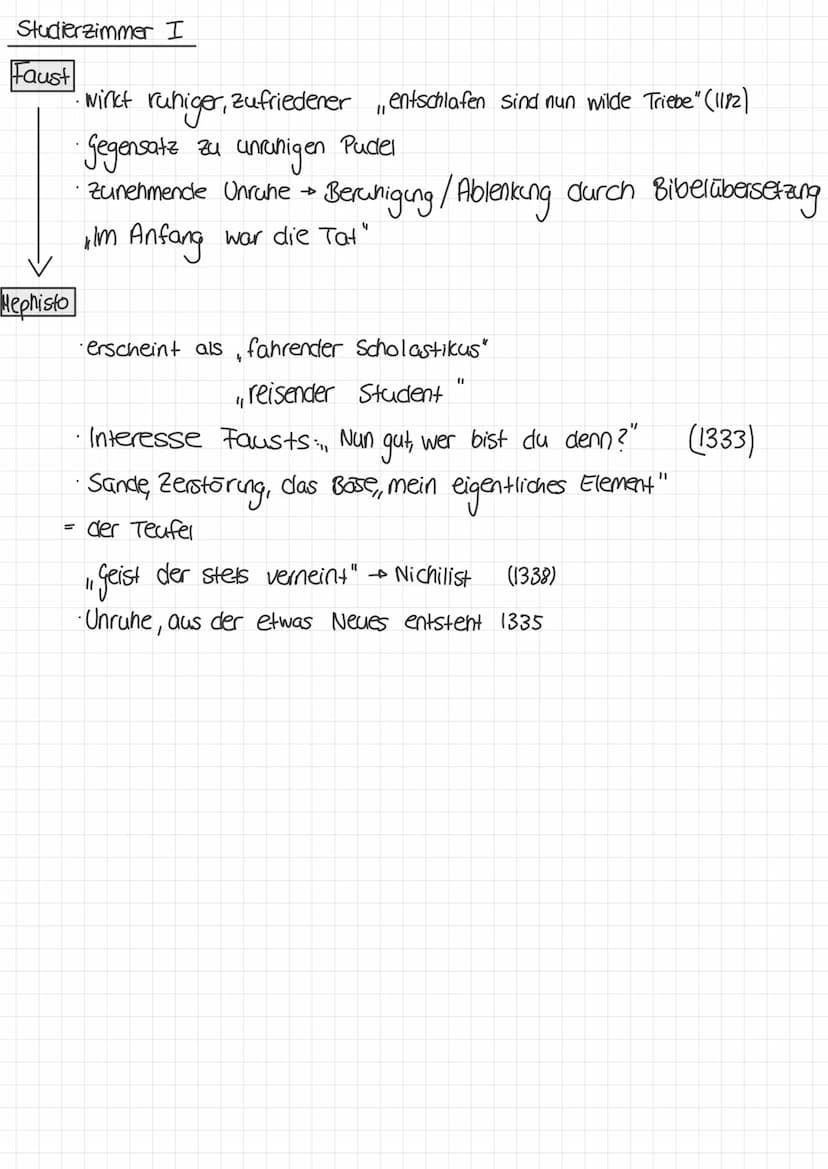 Studierzimmer I
Faust
· wirkt ruhiger, zufriedener „entschlafen sind nun wilde Triebe" (1182)
· Gegensatz zu unruhigen Pudel
· zunehmende Unruhe → Beruhigung / Ablenkung durch Bibelübersetzung
„Im Anfang war die Tat"
Mephisto
· erscheint als „fahrender Scholastikus"
„reisender Student"
· Interesse Fausts: „Nun gut, wer bist du denn?" (1333)
· Sünde, Zerstörung, das Böse „mein eigentliches Element"
= der Teufel
„Geist der stets verneint" → Nichilist (1338)
· Unruhe, aus der etwas Neues entsteht 1335